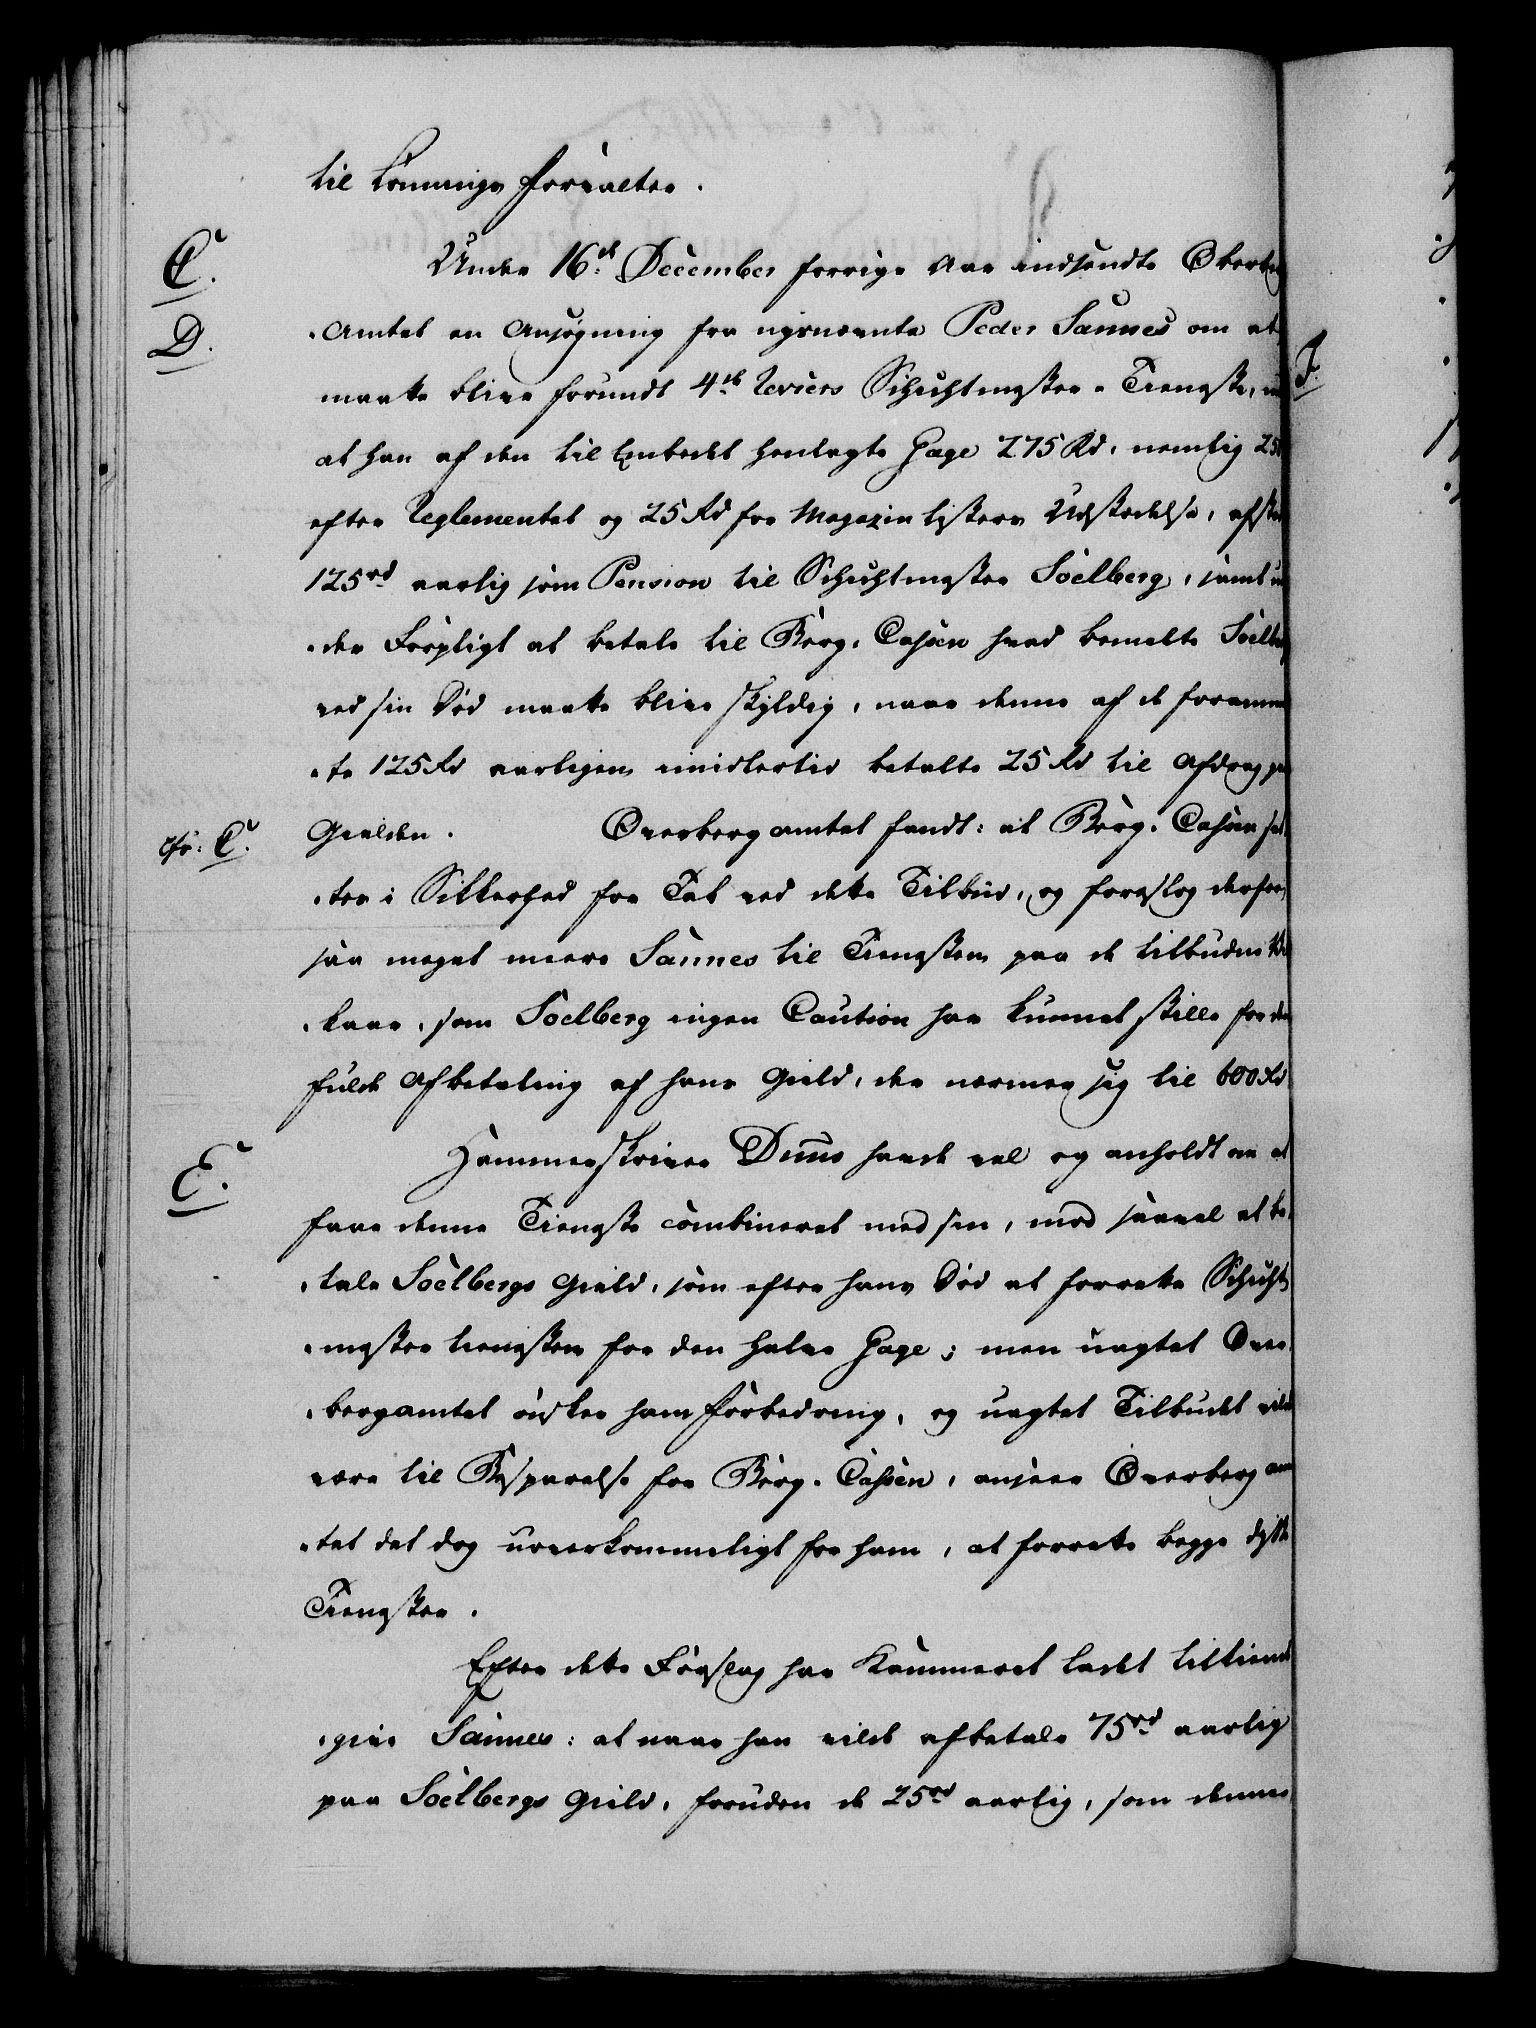 til Lønnings Forvalter.
C. Under 16de December forrige Aar indsendte Overberg
D. -Amtet en Ansøgning fra nysnævnte Peder Sannes om at
maatte blive forundt 4de Reviers Schichtmester-Tieneste,
at han af den til Embedet henlagte Gage 275 Rd, nemlig 250
efter Reglementet og 25 Rd for Magazin Listers Udstædelse, afstod
125rd aarlig som Pension til Schichtmester Soelberg, samt un
-der Forpligt at betale til Berg-Cassen hvad bemeldte Soelberg
ved sin Død maatte blive skyldig, naar denne af de foranmeld
-te 125 Rd aarligen imidlertid betalte 25 Rd til Afdrag paa
cfr: C. Gielden. Overbergamtet fandt: at Berg-Cassen sat
-tes i Sikkerhed for Tab ved dette Tilbud, og foreslog derfor
saa meget meere Sannes til Tienesten paa de tilbudne Vil
-kaar, som Soelberg ingen Caution har kunnet stille for den
fulde Afbetaling af hans Gield, der nærmer sig til 600 Rd
E. Hammerskriver Duus havde vel og anholdt om at
faae denne Tieneste combineret med sin, mod saavel at be
-tale Soelbergs Gield, som efter hans Død at forrette Schicht
-mester tienesten for den halve Gage; men uagtet Over
-bergamtet ønsker ham Forbedring, og uagtet Tilbudet vilde
være til Besparelse for Berg-Cassen, ansaae Overbergam
-tet det dog uoverkommeligt for ham, at forrette begge disse
Tienester.
Efter dette Forslag har Kammeret ladet tilkiende
-give Sannes: at naar han vilde afbetale 75rd aarlig
paa Soelbergs Gield, foruden de 25rd aarlig, som denne
F.